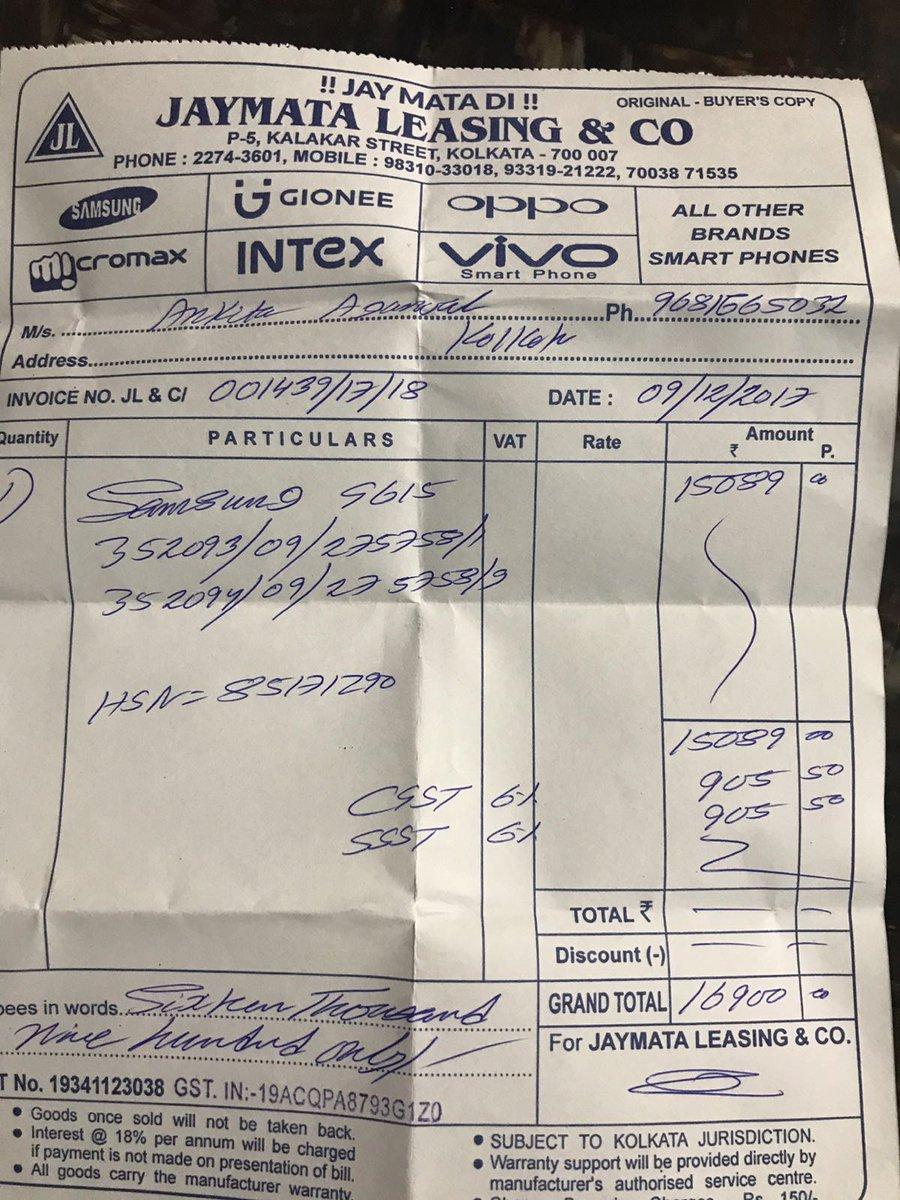 !! JAY MATA DI !!
ORIGINAL - BUYER'S COPY
JL
JAYMATA LEASING & CO
P-5, KALAKAR STREET, KOLKATA - 700 007
PHONE : 2274-3601, MOBILE : 98310-33018, 93319-21222, 70038 71535
SAMSUNG GIONEE oppo ALL OTHER BRANDS SMART PHONES
Micromax INTEX VIVO Smart Phone
M/s. Ankita Agarwal Ph. 9681565032
Address Kolkata
INVOICE NO. JL & C/ 001439/17/18 DATE : 09/12/2017
Quantity PARTICULARS VAT Rate Amount ₹ P.
1) Samsung G615 15089 00
352093/09/275758/1
352094/09/275758/9
HSN = 85171290
15089 00
905 50
CGST 6% 905 50
SGST 6%
TOTAL ₹
Discount (-)
pees in words. Sixteen Thousand GRAND TOTAL 16900 00
Nine hundred only/
For JAYMATA LEASING & CO.
T No. 19341123038 GST. IN:-19ACQPA8793G1Z0
• Goods once sold will not be taken back.
• Interest @ 18% per annum will be charged
if payment is not made on presentation of bill.
• All goods carry the manufacturer warranty.
• SUBJECT TO KOLKATA JURISDICTION.
• Warranty support will be provided directly by
manufacturer's authorised service centre.
Rs. 150/-